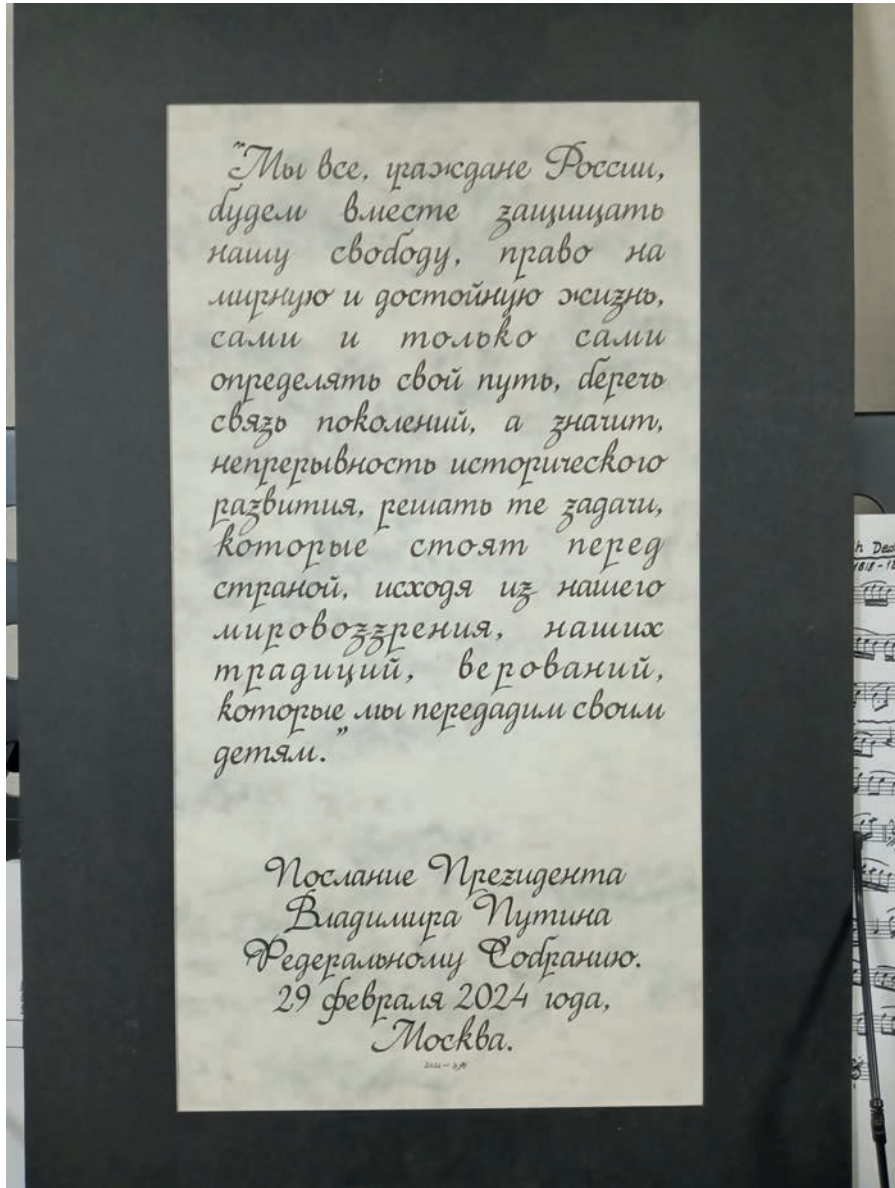 "Мы все, граждане России,
будем вместе защищать
нашу свободу, право на
мирную и достойную жизнь,
сами и только сами
определять свой путь, беречь
связь поколений, а значит,
непрерывность исторического
развития, решать те задачи,
которые стоят перед
страной, исходя из нашего
мировоззрения, наших
традиций, верований,
которые мы передадим своим
детям."
Послание Президента
Владимира Путина
Федеральному Собранию.
29 февраля 2024 года,
Москва.